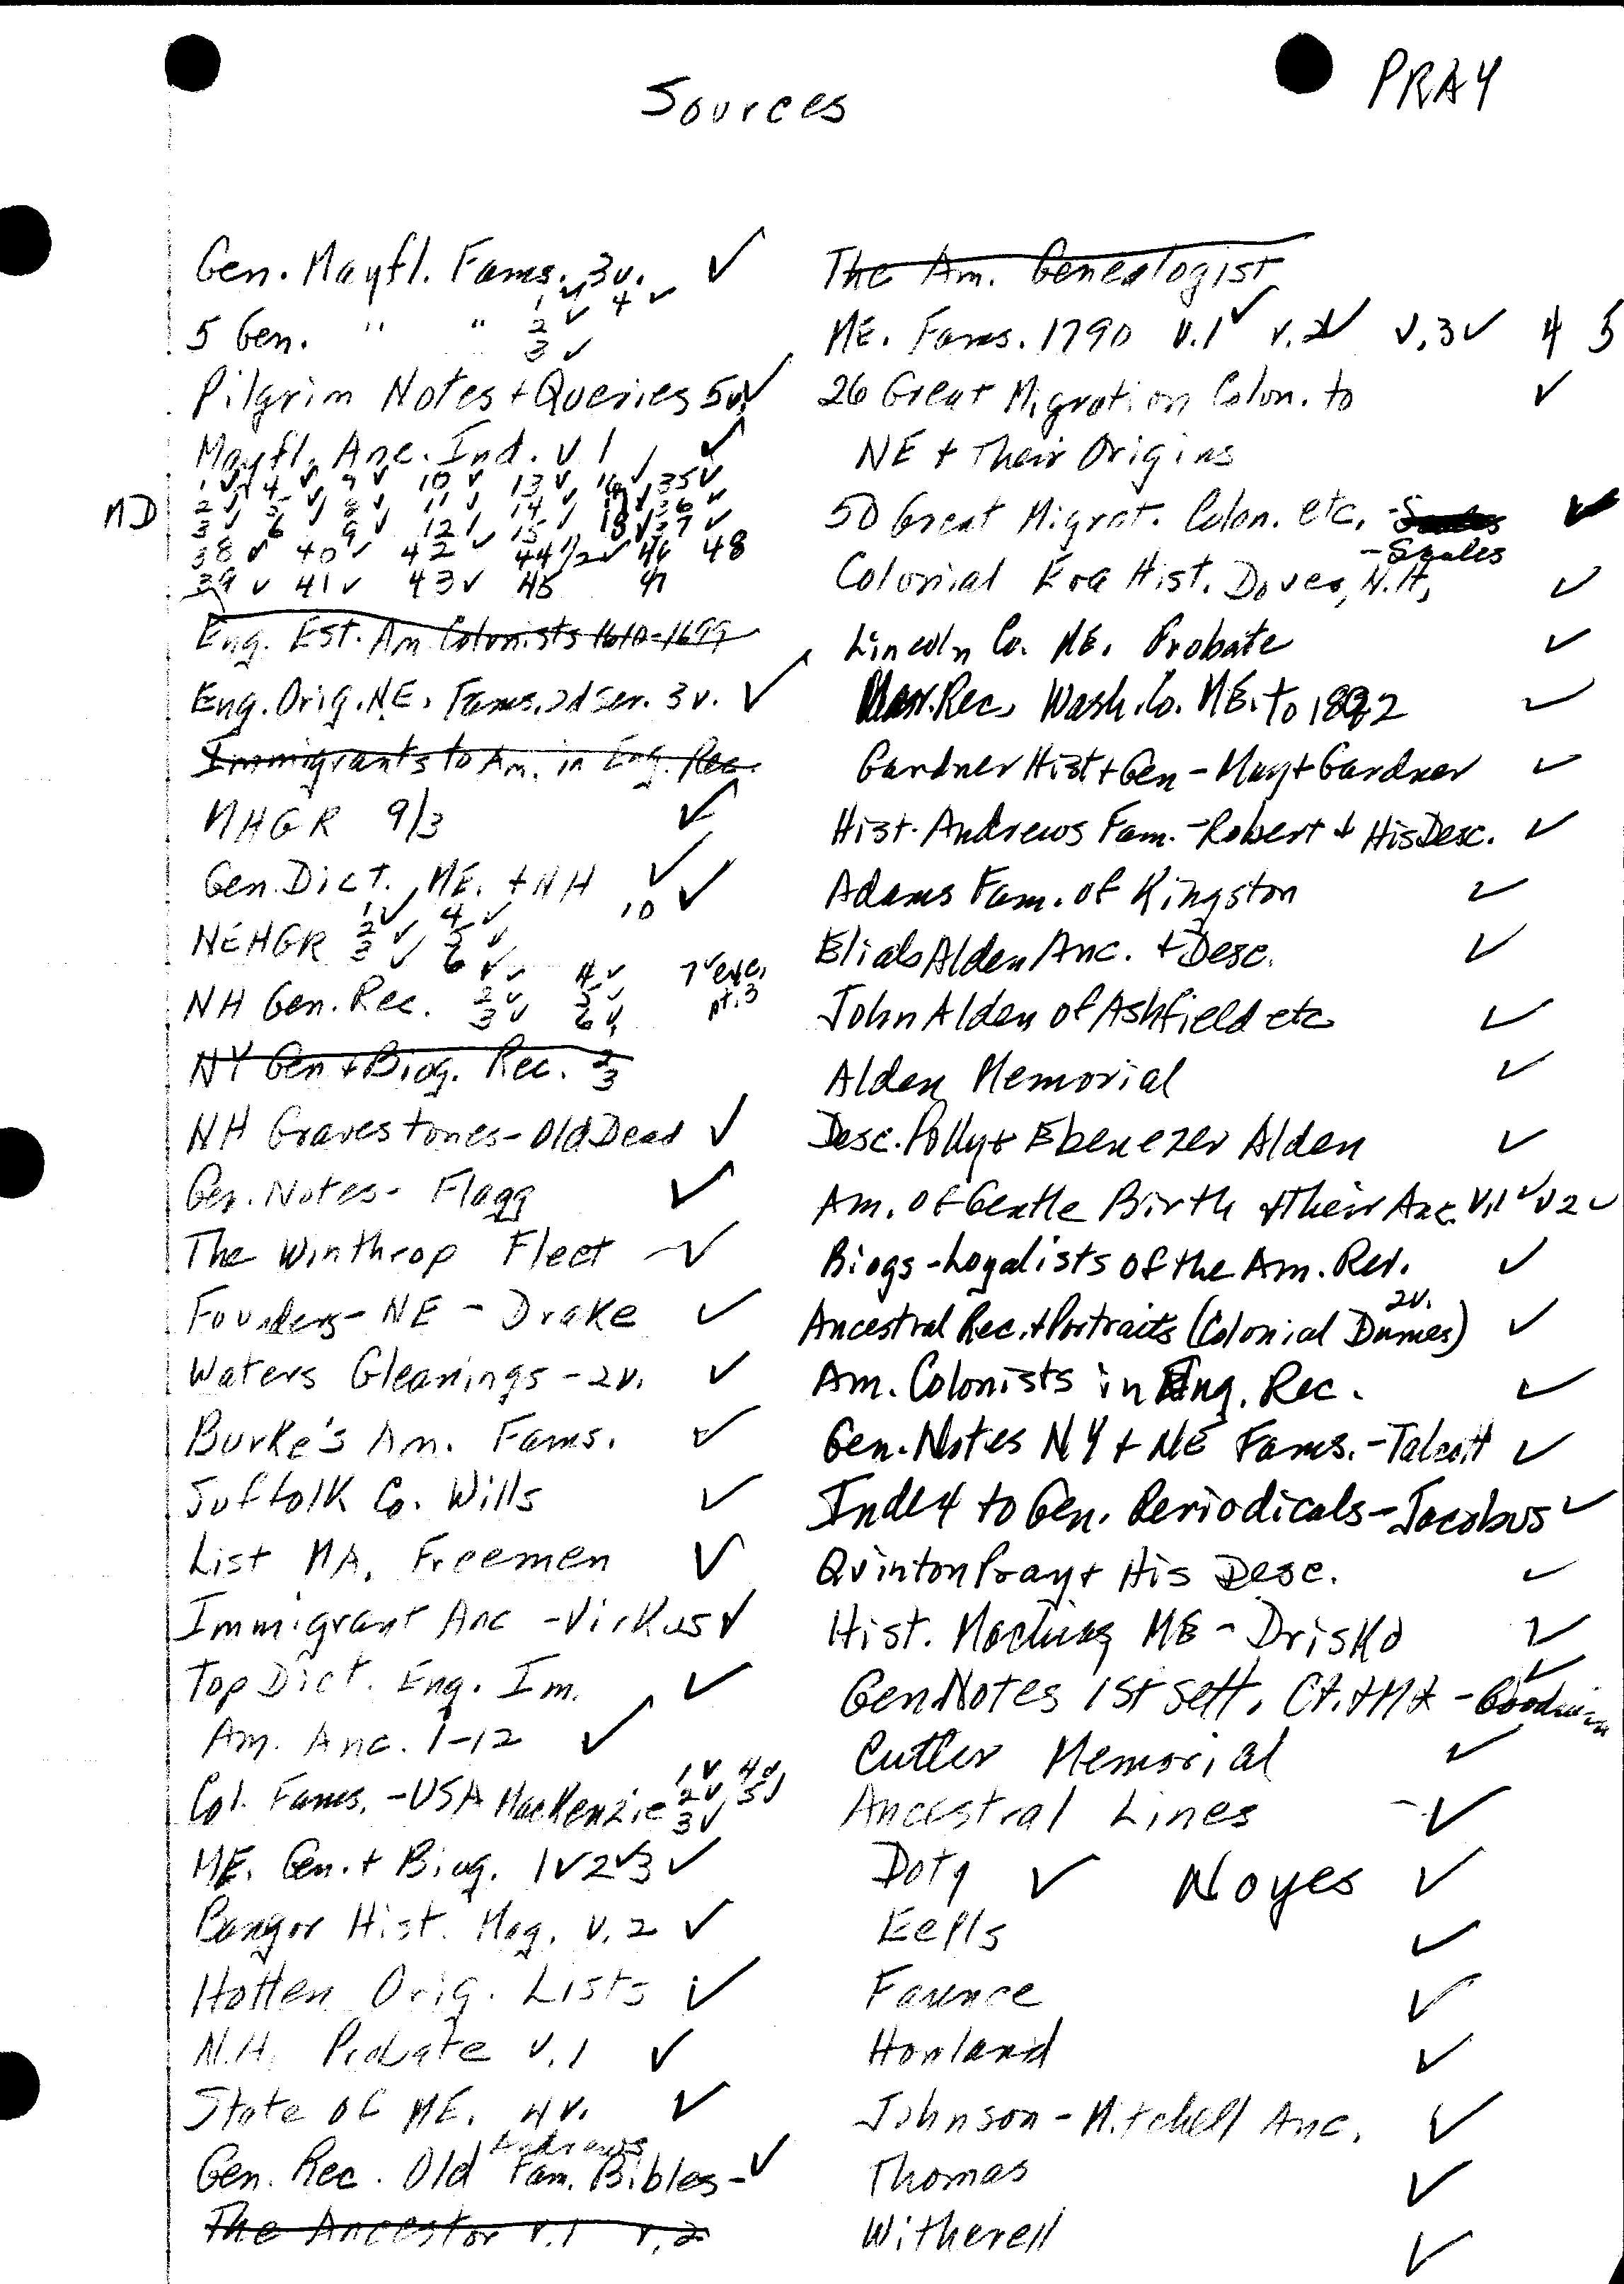 Sources
PRAY
Gen. Mayfl. Fams. 3v. ✓
5 Gen. " " 1 ✓ 2 ✓ 3 ✓ 4 ✓
Pilgrim Notes + Queries 5v. ✓
Mayfl. Anc. Ind. v 1 ✓
1 ✓ 4 ✓ 10 ✓ 13 ✓ 16 ✓ 35 ✓
MD 2 ✓ 5 ✓ 8 ✓ 11 ✓ 14 ✓ 17 ✓ 36 ✓
3 ✓ 6 9 ✓ 12 ✓ 15 ✓ 18 ✓ 37 ✓
38 ✓ 40 ✓ 42 ✓ 44 1/2 ✓ 46 48
39 ✓ 41 ✓ 43 ✓ 45 47
Eng. Est. Am Colonists 1610-1699
Eng. Orig. NE. Fams. 2d Ser. 3v. ✓
Immigrants to Am. in Eng. Rec.
NHGR 9/3 ✓
Gen. Dict. ME. + NH ✓
NEHGR 1 ✓ 2 ✓ 3 ✓ 4 ✓ 5 ✓ 6 ✓ 10 ✓
NH Gen. Rec. 1 ✓ 2 ✓ 3 ✓ 4 ✓ 5 ✓ 6 ✓ 7 ✓ exc. pt. 3
NY Gen + Biog. Rec. 2 3
NH Gravestones - Old Dead ✓
Gen. Notes - Flagg ✓
The Winthrop Fleet - ✓
Founders - NE - Drake ✓
Waters Gleanings - 2v. ✓
Burke's Am. Fams. ✓
Suffolk Co. Wills ✓
List MA. Freemen ✓
Immigrant Anc - Virkus ✓
Top Dict. Eng. Im. ✓
Am. Anc. 1-12 ✓
Col. Fams. - USA MacKenzie 1 ✓ 2 ✓ 3 ✓ 4 ✓ 5 ✓
ME. Gen. + Biog. 1 ✓ 2 ✓ 3 ✓
Bangor Hist. Mag. v. 2 ✓
Hotten Orig. Lists ✓
N.H. Probate v. 1 ✓
State of ME. 4v. ✓
Andrews
Gen. Rec. Old Fam. Bibles - ✓
The Ancestor v.1 v.2
The Am. Genealogist
ME. Fams. 1790 v.1 ✓ v.2 ✓ v.3 ✓ 4 5
26 Great Migration Colon. to ✓
NE + Their Origins
50 Great Migrat. Colon. etc. - ✓
- Scales
Colonial Era Hist. Dover, N.H. ✓
Lincoln Co. ME. Probate ✓
Marr. Rec. Wash. Co. ME. to ✓
Gardner Hist + Gen - May + Gardner ✓
Hist. Andrews Fam. - Robert + His Desc. ✓
Adams Fam. of Kingston ✓
Eliab Alden Anc. + Desc. ✓
John Alden of Ashfield etc ✓
Alden Memorial ✓
Desc. Polly + Ebenezer Alden ✓
Am. of Gentle Birth + Their Anc. v.1 ✓ v 2 ✓
Biogs - Loyalists of the Am. Rev. ✓
2v.
Ancestral Rec. + Portraits (Colonial Dames) ✓
Am. Colonists in Eng. Rec. ✓
Gen. Notes NY + NE Fams. - Talcott ✓
Index to Gen. Periodicals - Jacobus ✓
Quinton Pray + His Desc. ✓
Hist. Machias ME - Drisko ✓
Gen Notes 1st Sett. Ct. + MA - Goodwin ✓
Cutler Memorial ✓
Ancestral Lines - ✓
Doty ✓ Noyes ✓
Eells ✓
Faunce ✓
Howland ✓
Johnson - Mitchell Anc. ✓
Thomas ✓
Witherell ✓